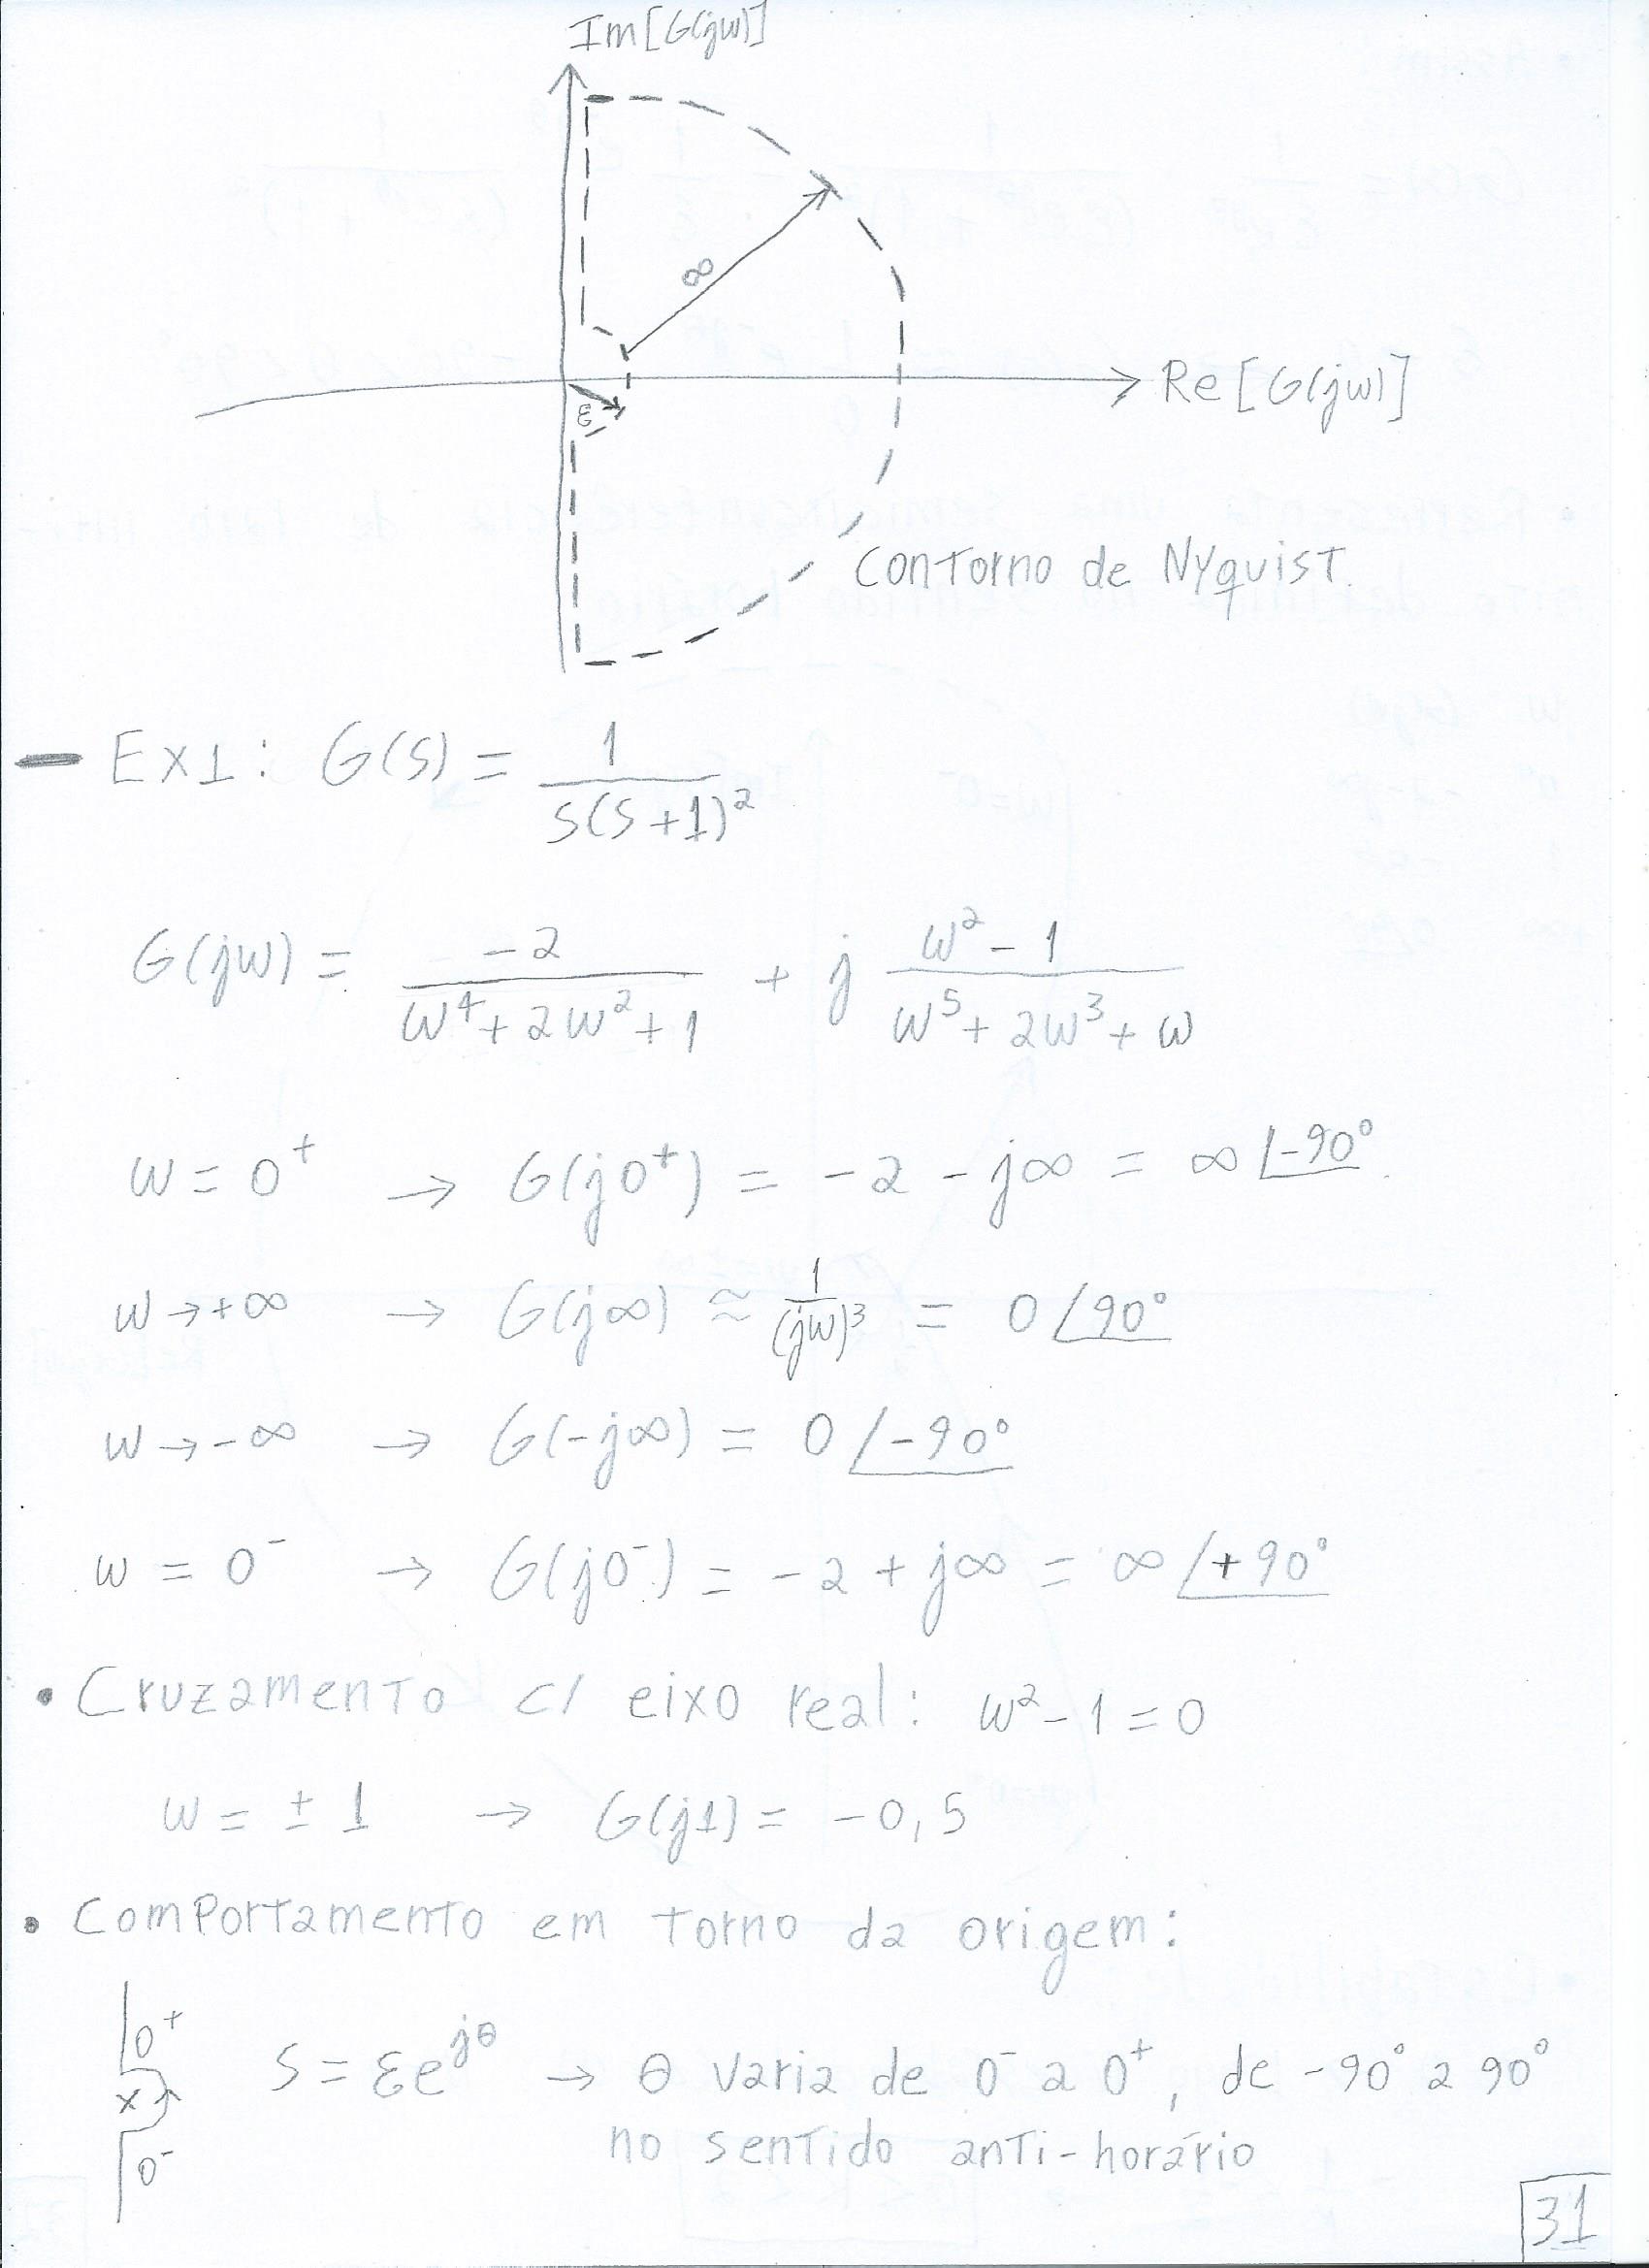 Im[G(jw)]
∞
Re[G(jw)]
ε
Contorno de Nyquist.
- Ex1: G(s) = 1 / s(s+1)²
G(jw) = -2 / (w⁴+2w²+1) + j (w²-1) / (w⁵+2w³+w)
w = 0⁺ → G(j0⁺) = -2 - j∞ = ∞ ∠-90°.
w→+∞ → G(j∞) ≈ 1/(jw)³ = 0 ∠90°
w→-∞ → G(-j∞) = 0 ∠-90°
w = 0⁻ → G(j0⁻) = -2 + j∞ = ∞ ∠+90°
• Cruzamento c/ eixo real: w²-1=0
w = ±1 → G(j1) = -0,5
• Comportamento em torno da origem:
0⁺
x
0⁻
s = εe^jθ → θ varia de 0⁻ a 0⁺, de -90° a 90°
no sentido anti-horário
31